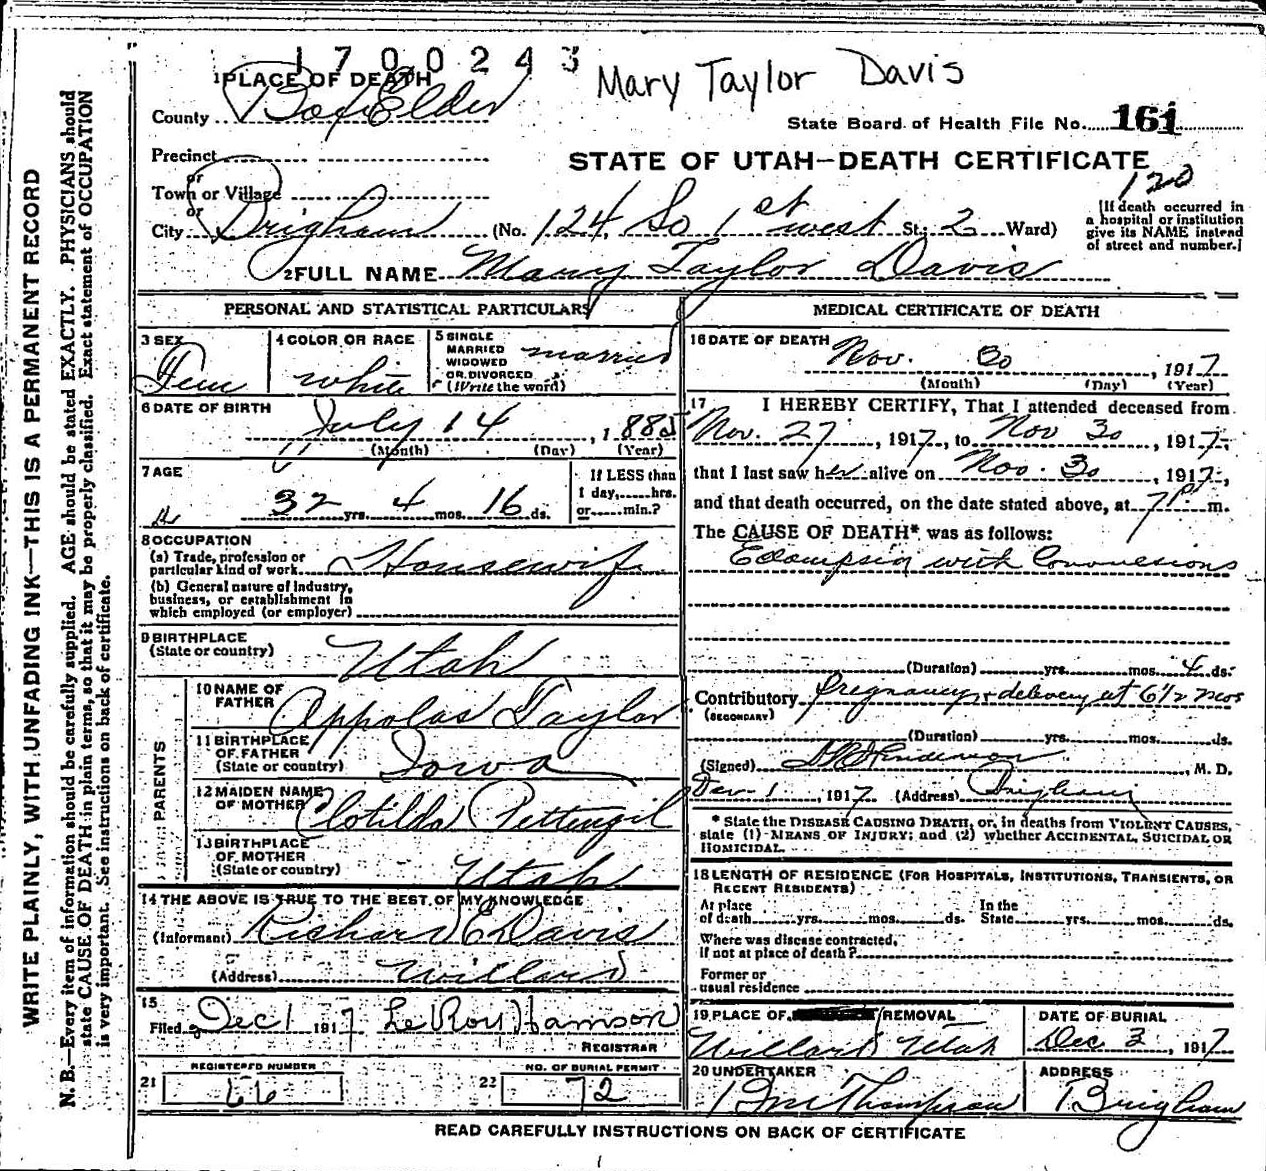 1700243
Mary Taylor Davis
1 PLACE OF DEATH
County Box Elder
State Board of Health File No. 161
Precinct
or
Town or Village
or
City Brigham (No. 124, So 1st west St; 2 Ward)
STATE OF UTAH—DEATH CERTIFICATE
120
[If death occurred in
a hospital or institution
give its NAME instead
of street and number.]
2 FULL NAME Mary Taylor Davis
PERSONAL AND STATISTICAL PARTICULARS
3 SEX
Fem
4 COLOR OR RACE
white
5 SINGLE
MARRIED
WIDOWED
OR DIVORCED
(Write the word)
married
6 DATE OF BIRTH
July 14, 1885
(Month) (Day) (Year)
7 AGE
32 yrs. 4 mos. 16 ds.
If LESS than
1 day, hrs.
or min.?
8 OCCUPATION
(a) Trade, profession or
particular kind of work Housewife
(b) General nature of industry,
business, or establishment in
which employed (or employer)
9 BIRTHPLACE
(State or country)
Utah
PARENTS
10 NAME OF
FATHER
Appolas Taylor
11 BIRTHPLACE
OF FATHER
(State or country)
Iowa
12 MAIDEN NAME
OF MOTHER
Clotilda Pettengil
13 BIRTHPLACE
OF MOTHER
(State or country)
Utah
14 THE ABOVE IS TRUE TO THE BEST OF MY KNOWLEDGE
(Informant) Richard E Davis
(Address) Willard
15
Filed Dec 1 1917 LeRoy Hamson
REGISTRAR
21 REGISTERED NUMBER
66
22 NO. OF BURIAL PERMIT
72
MEDICAL CERTIFICATE OF DEATH
16 DATE OF DEATH
Nov. 30, 1917
(Month) (Day) (Year)
17 I HEREBY CERTIFY, That I attended deceased from
Nov. 27, 1917, to Nov 30, 1917,
that I last saw her alive on Nov. 30, 1917,
and that death occurred, on the date stated above, at 7 P m.
The CAUSE OF DEATH* was as follows:
Eclampsia with Convulsions
(Duration) yrs. mos. 4 ds.
Contributory pregnancy & delivery at 6 1/2 mos
(SECONDARY)
(Duration) yrs. mos. ds.
(Signed), M. D.
Dec 1, 1917 (Address) Brigham
* State the DISEASE CAUSING DEATH, or, in deaths from VIOLENT CAUSES,
state (1) MEANS OF INJURY; and (2) whether ACCIDENTAL, SUICIDAL OR
HOMICIDAL.
18 LENGTH OF RESIDENCE (FOR HOSPITALS, INSTITUTIONS, TRANSIENTS, OR
RECENT RESIDENTS)
At place
of death yrs. mos. ds.
In the
State yrs. mos. ds.
Where was disease contracted,
if not at place of death?
Former or
usual residence
19 PLACE OF REMOVAL
Willard Utah
DATE OF BURIAL
Dec 3, 1917
20 UNDERTAKER
Thompson
ADDRESS
Brigham
READ CAREFULLY INSTRUCTIONS ON BACK OF CERTIFICATE
WRITE PLAINLY, WITH UNFADING INK—THIS IS A PERMANENT RECORD
N. B.—Every item of information should be carefully supplied. AGE should be stated EXACTLY. PHYSICIANS should
state CAUSE OF DEATH in plain terms, so that it may be properly classified. Exact statement of OCCUPATION
is very important. See instructions on back of certificate.